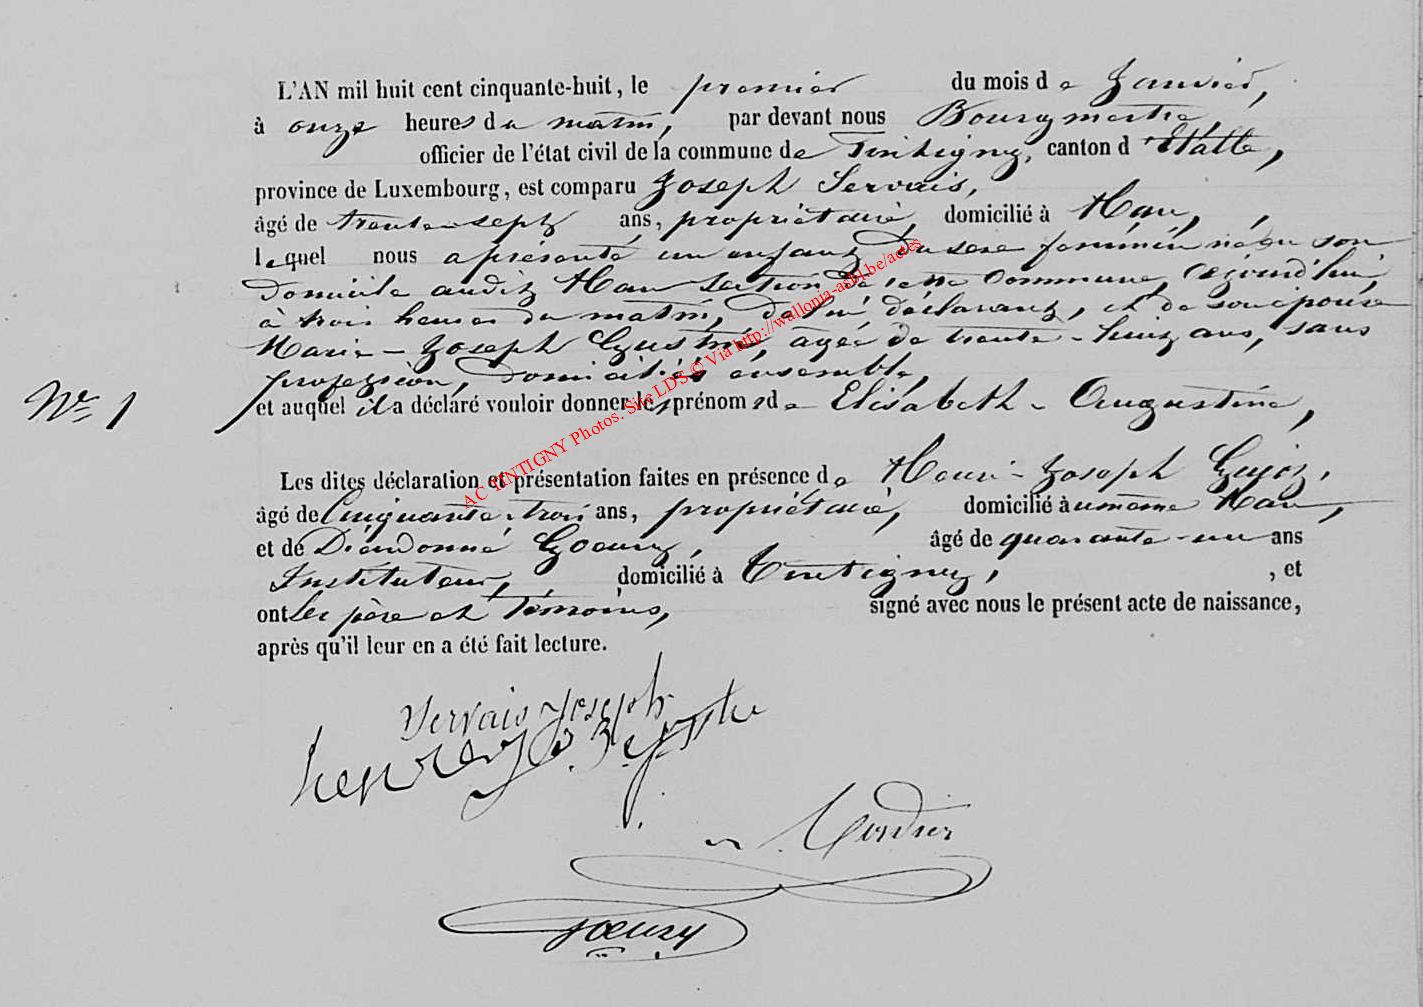 L'AN mil huit cent cinquante-huit, le premier du mois de Janvier,
à onze heures du matin, par devant nous Bourgmestre,
officier de l'état civil de la commune de Tintigny, canton d'Etalle,
province de Luxembourg, est comparu Joseph Servais,
âgé de trente-sept ans, propriétaire, domicilié à Han,
lequel nous a présenté un enfant du sexe féminin né en son
domicile audit Han section de cette commune, cejourd'hui,
à trois heures du matin, de lui déclarant, et de son épouse
Marie-Joseph, âgée de trente-huit ans, sans
profession, domiciliés ensemble,
N° 1
et auquel il a déclaré vouloir donner les prénoms de Elisabeth-Augustine,
Les dites déclaration et présentation faites en présence de Henri-Joseph
âgé de Cinquante-trois ans, propriétaire, domicilié au même Han,
et de Dieudonné Goeury, âgé de quarante-un ans
Instituteur, domicilié à Tintigny, , et
ont les père et témoins, signé avec nous le présent acte de naissance,
après qu'il leur en a été fait lecture.
Servais Joseph
Goeury
AC TINTIGNY Photos. Site LDS © Via http://wallonia-asbl.be/actes